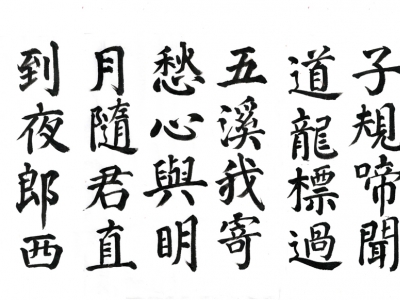 子規啼聞
道龍標過
五溪我寄
愁心與明
月隨君直
到夜郎西